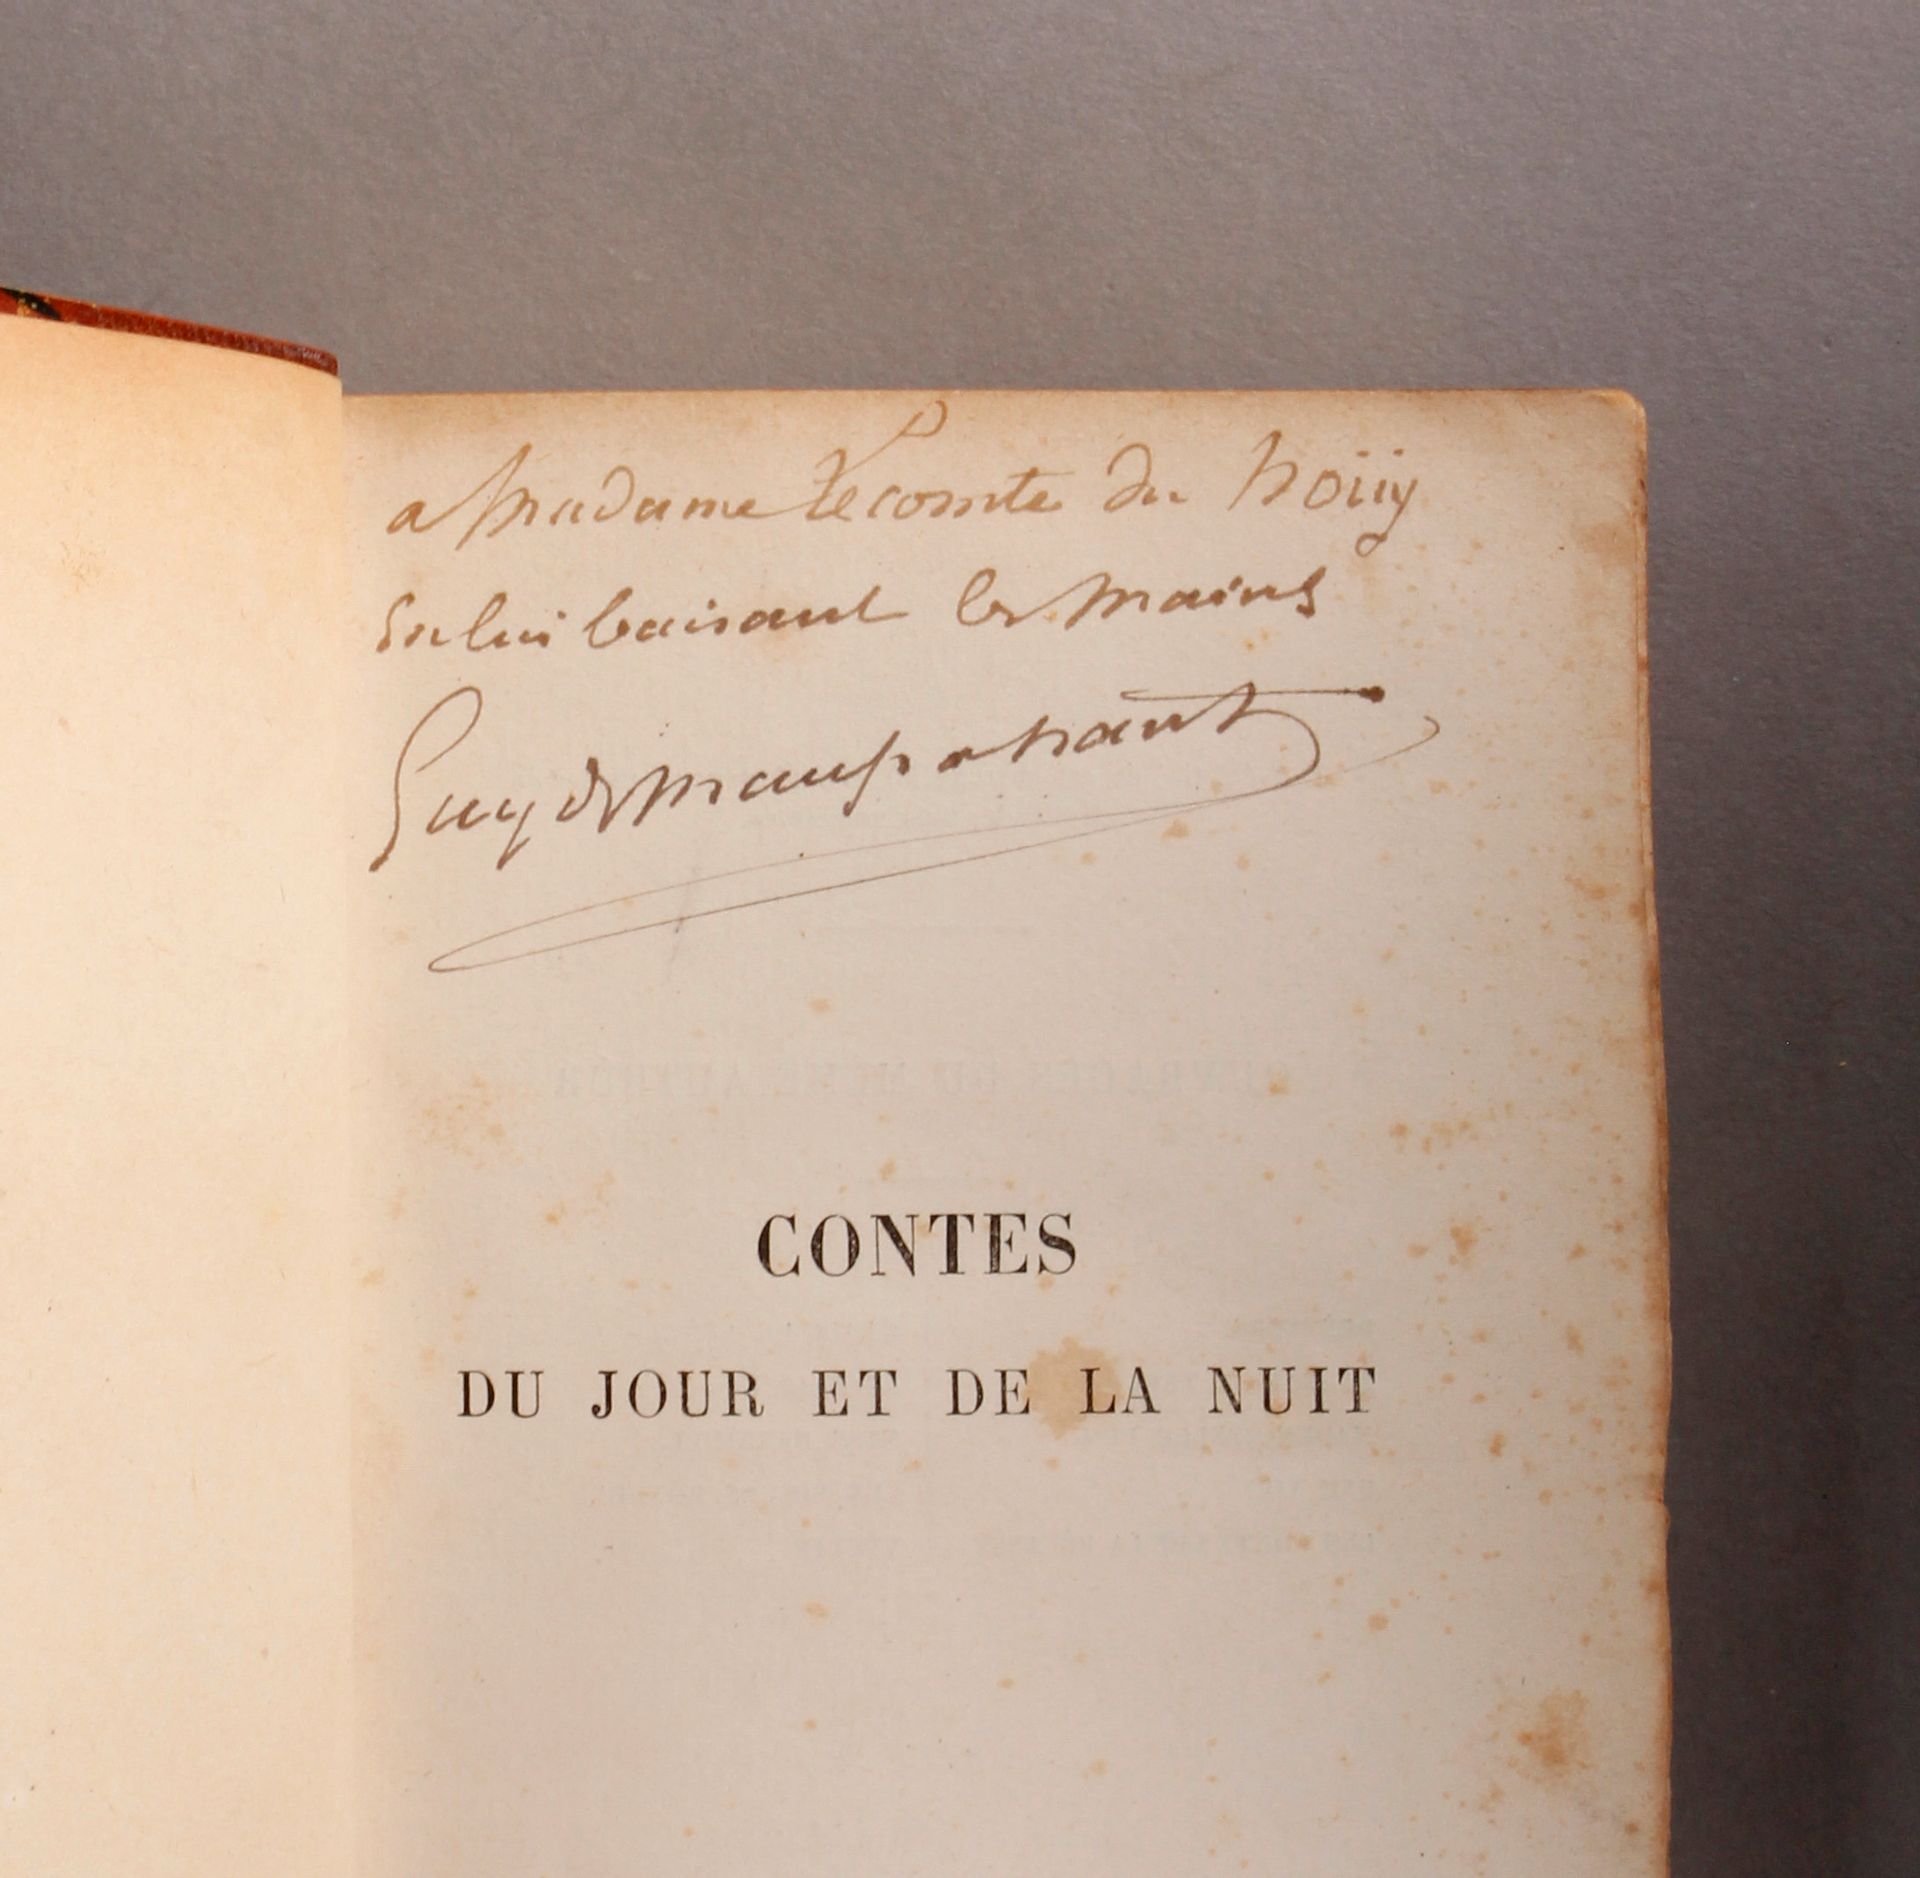 a Madame Lecomte du Noüy
En lui baisant les mains
Guy de Maupassant
CONTES
DU JOUR ET DE LA NUIT